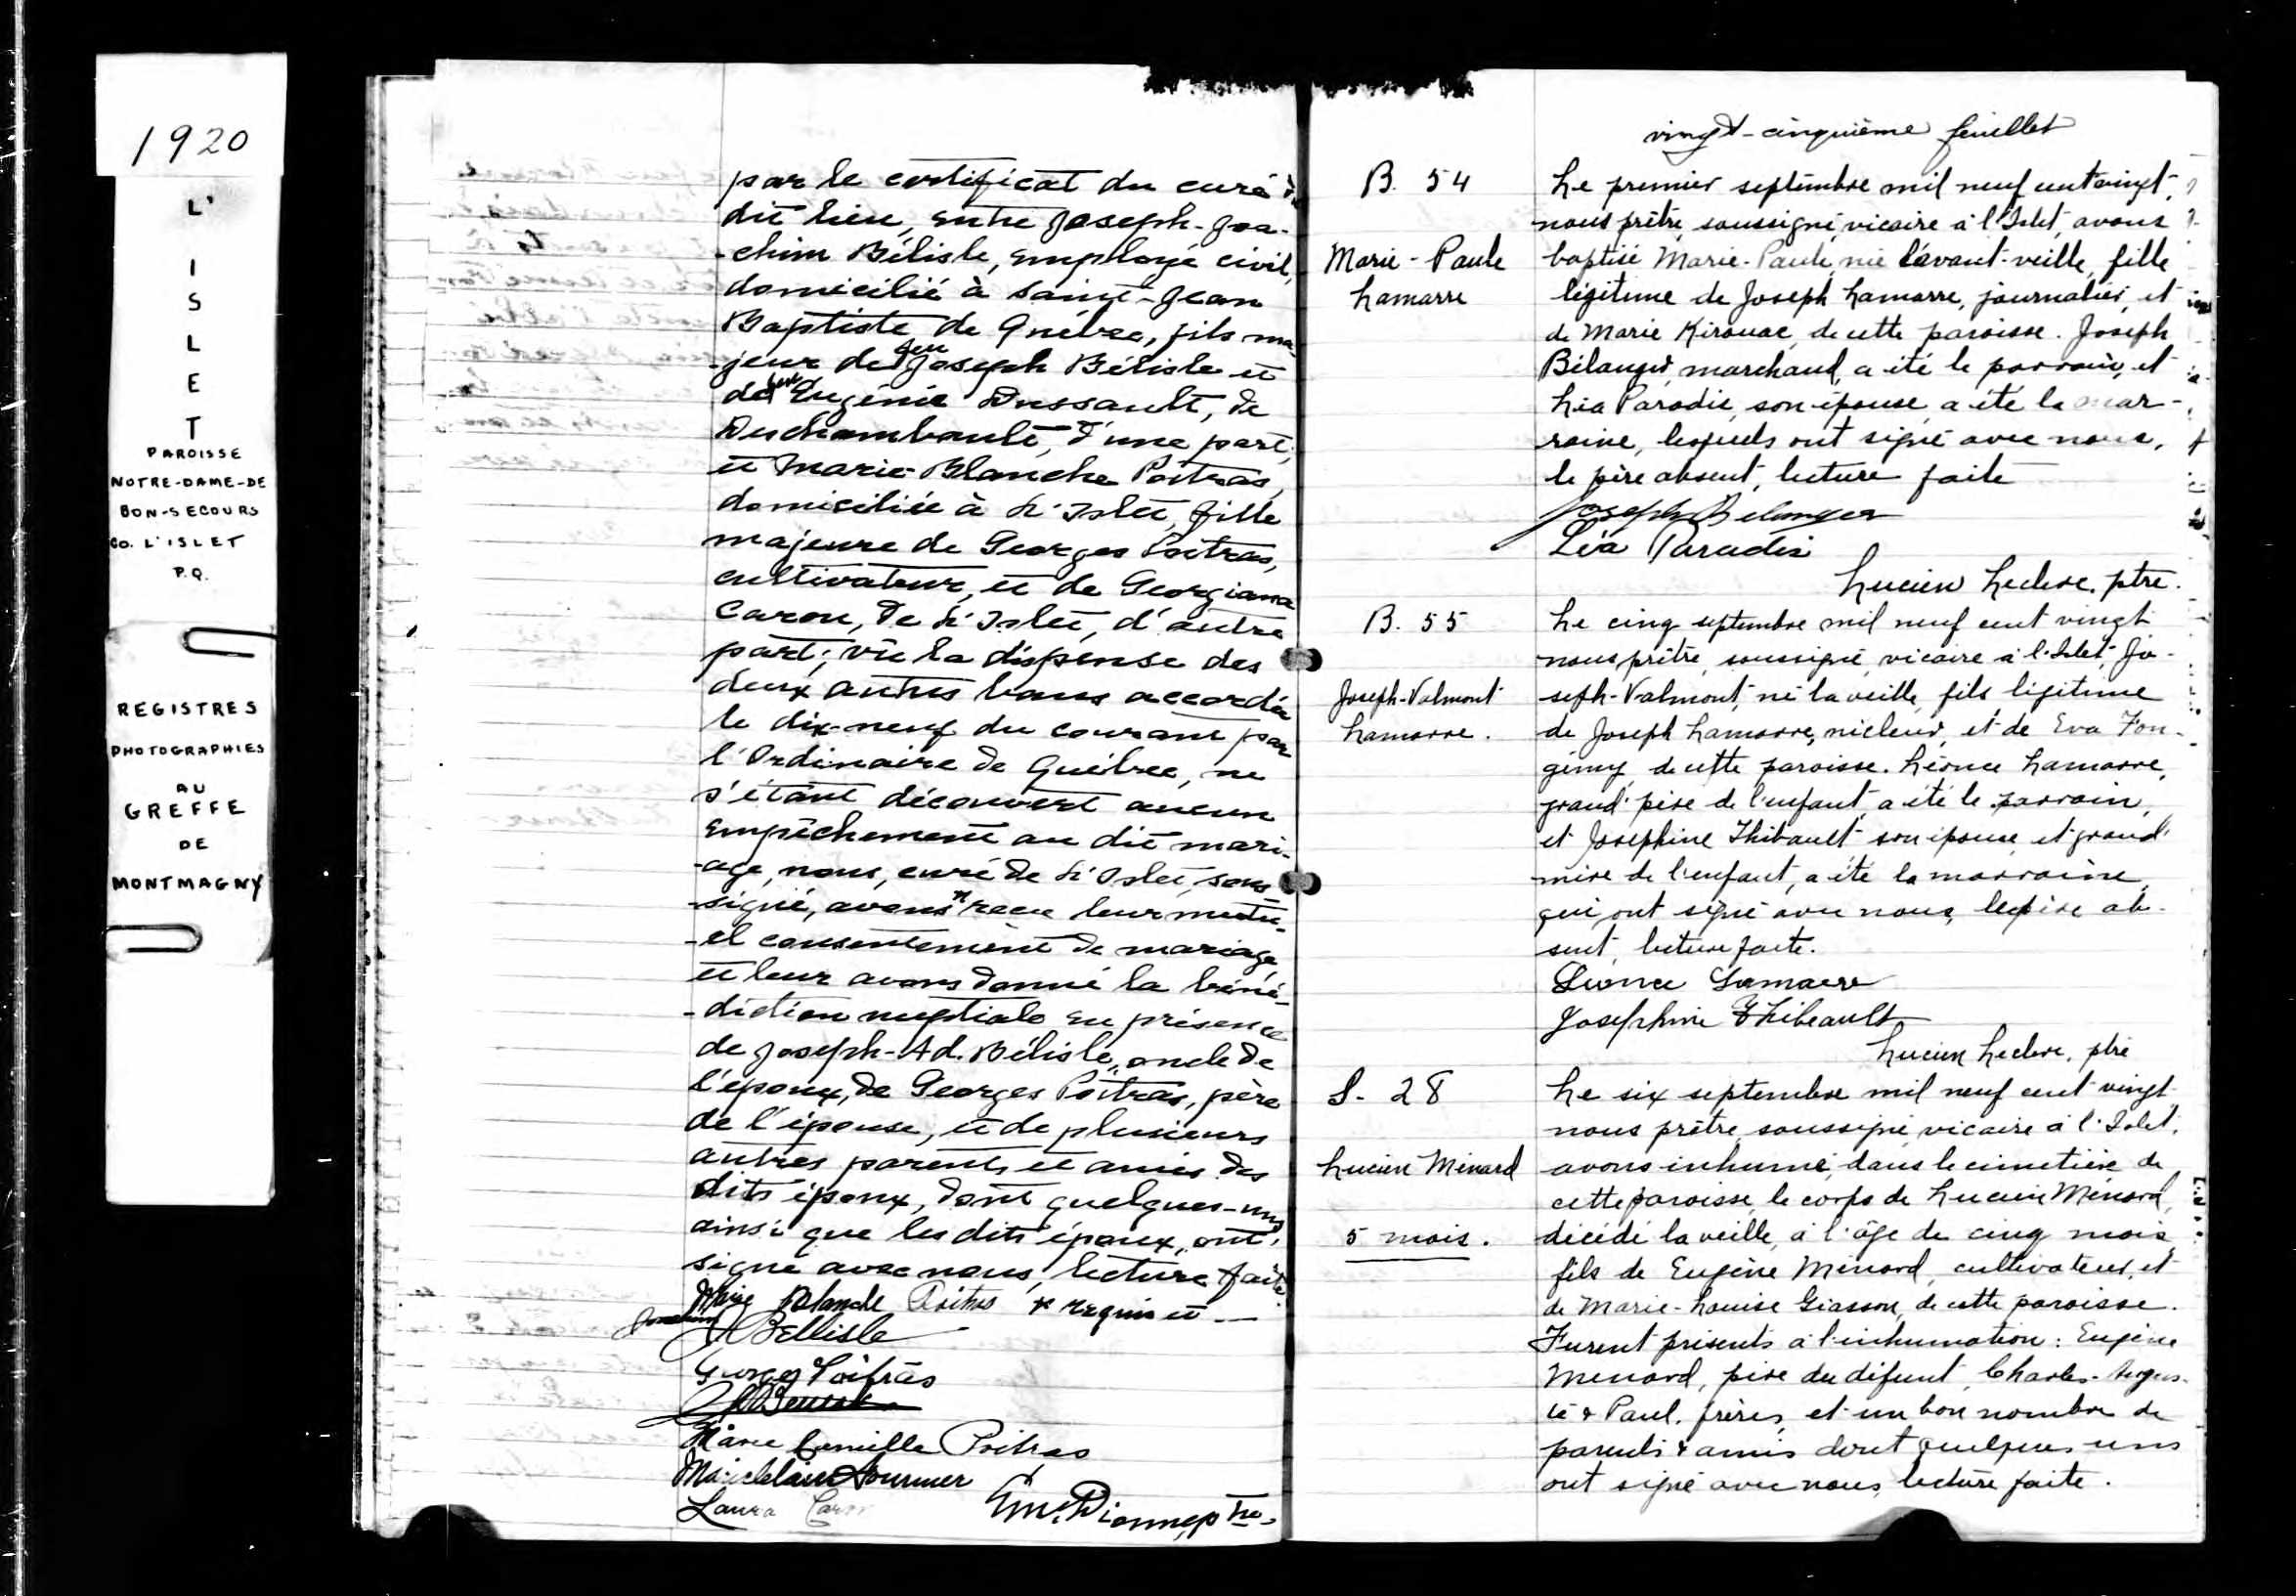 1920
L'
I
S
L
E
T
PAROISSE
NOTRE-DAME-DE
BON-SECOURS
CO. L'ISLET
P.Q.
REGISTRES
PHOTOGRAPHIES
AU
GREFFE
DE
MONTMAGNY
par le certificat du curé du
dit lieu, entre Joseph-Joa-
-chim Bélisle, employé civil,
domicilié à Saint-Jean
Baptiste de Québec, fils ma-
jeur de feu Joseph Bélisle et
de feue Eugénie Dussault, de
Deschambault, d'une part;
et Marie-Blanche Poitras,
domiciliée à L'Islet, fille
majeure de Georges Poitras,
cultivateur, et de Georgiana
Caron, de L'Islet, d'autre
part; vû la dispense des
deux autres bans accordée
le dix-neuf du courant par
l'Ordinaire de Québec, ne
s'étant découvert aucun
empêchement au dit mari-
-age, nous, curé de L'Islet, sous-
-signé, avons * reçu leur mutu-
-el consentement de mariage
et leur avons donné la béné-
-diction nuptiale en présence
de Joseph-Ad. Bélisle, oncle de
l'époux, de Georges Poitras, père
de l'épouse, et de plusieurs
autres parents et amis des
dits époux, dont quelques-uns
ainsi que les dits époux, ont
signé avec nous, lecture faite.
Marie Blanche Poitras * requis et —
Joachim Bellisle
Georges Poitras
Marie Camille Poitras
Marie Claire Fournier
Laura Caron
Em. Dionne, ptre.
vingt-cinquième feuillet
B. 54
Marie-Paule
Lamarre
Le premier septembre mil neuf cent vingt,
nous prêtre, soussigné, vicaire à l'Islet, avons
baptisé Marie-Paule, née l'avant-veille, fille
légitime de Joseph Lamarre, journalier, et
de Marie Kirouac, de cette paroisse. Joseph
Bélanger, marchand, a été le parrain, et
Léa Paradis, son épouse, a été la mar-
raine, lesquels ont signé avec nous,
le père absent, lecture faite
Joseph Belanger
Léa Paradis
Lucien Leclerc. ptre.
B. 55
Joseph-Valmont
Lamarre.
Le cinq septembre mil neuf cent vingt
nous prêtre, soussigné, vicaire à l'Islet, Jo-
seph-Valmont, né la veille, fils légitime
de Joseph Lamarre, nicleur, et de Eva Fon-
gémy, de cette paroisse. Léonce Lamarre,
grand'père de l'enfant, a été le parrain,
et Joséphine Thibault son épouse, et grand'
mère de l'enfant, a été la marraine,
qui ont signé avec nous, le père ab-
sent, lecture faite.
Léonce Lamarre
Josephine Thibeault
Lucien Leclerc, ptre
S. 28
Lucien Ménard
5 mois.
Le six septembre mil neuf cent vingt
nous prêtre, soussigné, vicaire à l'Islet,
avons inhumé, dans le cimetière de
cette paroisse, le corps de Lucien Ménard,
décédé la veille, à l'âge de cinq mois,
fils de Eugène Ménard, cultivateur, et
de Marie-Louise Giasson, de cette paroisse.
Furent présents à l'inhumation: Eugène
Ménard, père du défunt, Charles-Augus-
te & Paul, frères, et un bon nombre de
parents & amis dont quelques uns
ont signé avec nous, lecture faite.